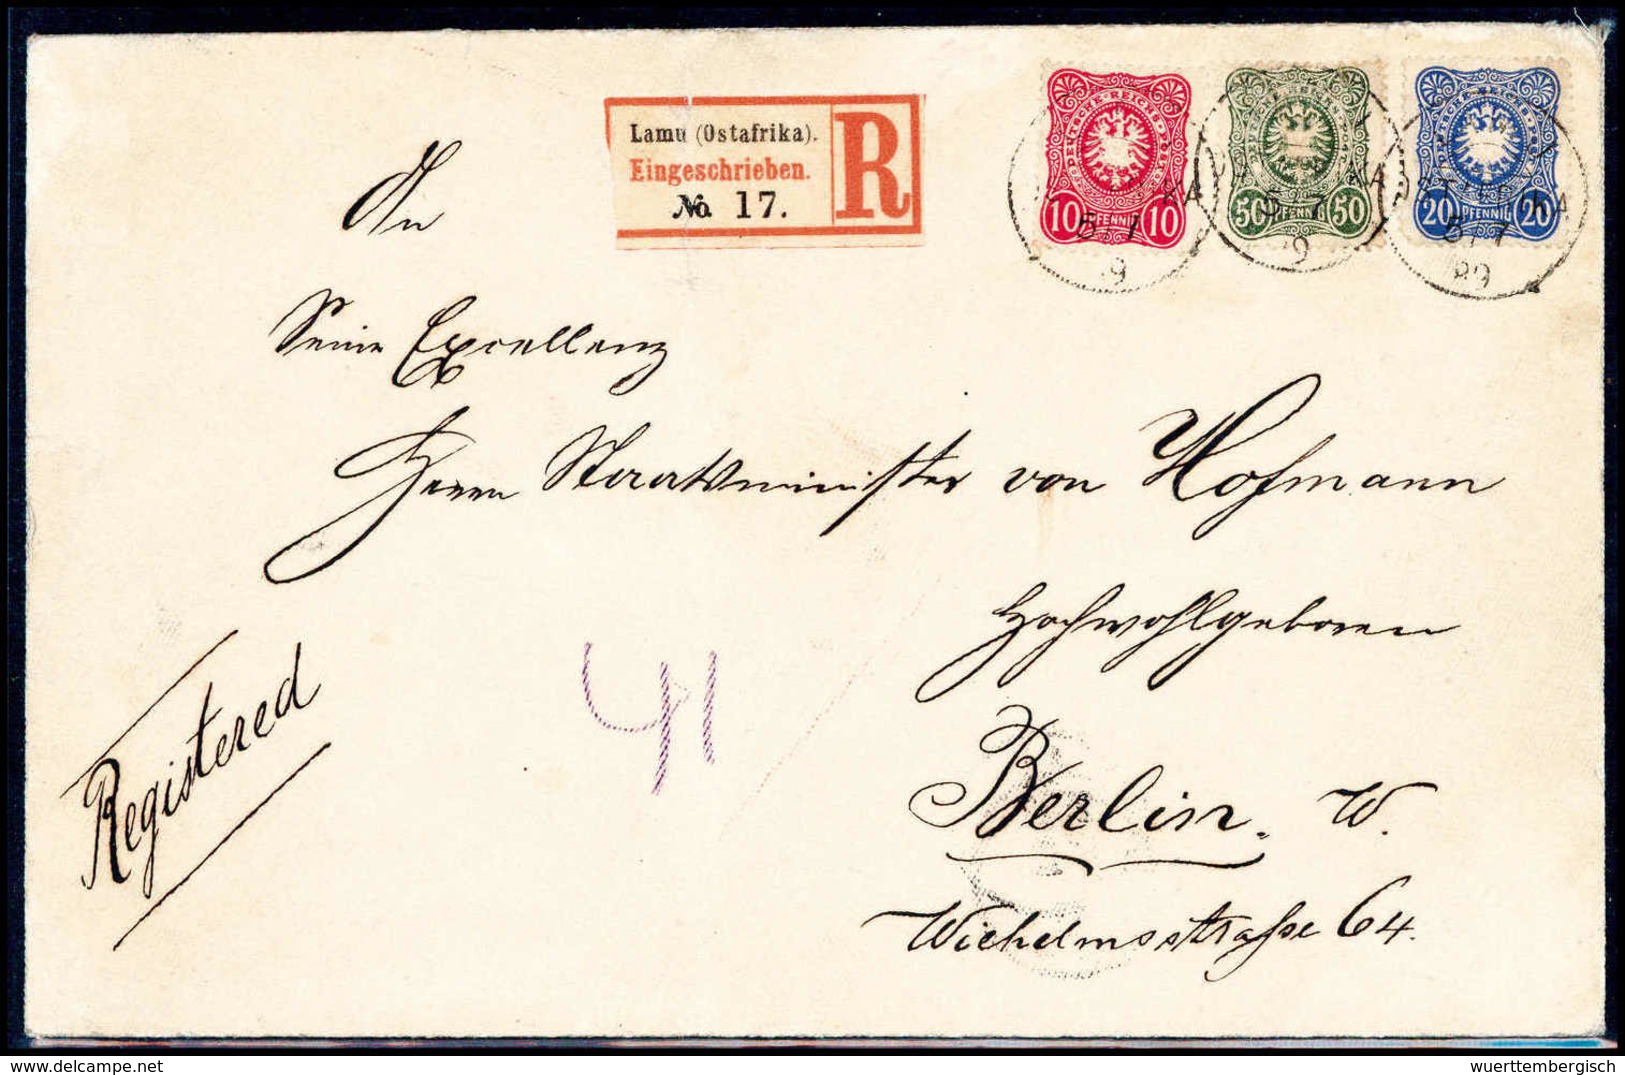 Lamu (Ostafrika).
Eingeschrieben.
No. 17.
R
DEUTSCHE REICHS-POST
10 PFENNIG 10
50 PFENNIG 50
20 PFENNIG 20
OSTAFRIKA
5/7
89
An
Seine Excellenz
Herrn Staatsminister von Hofmann
Hochwohlgeboren
Berlin. W.
Wilhelmsstraße 64.
Registered
41
wuerttembergisch